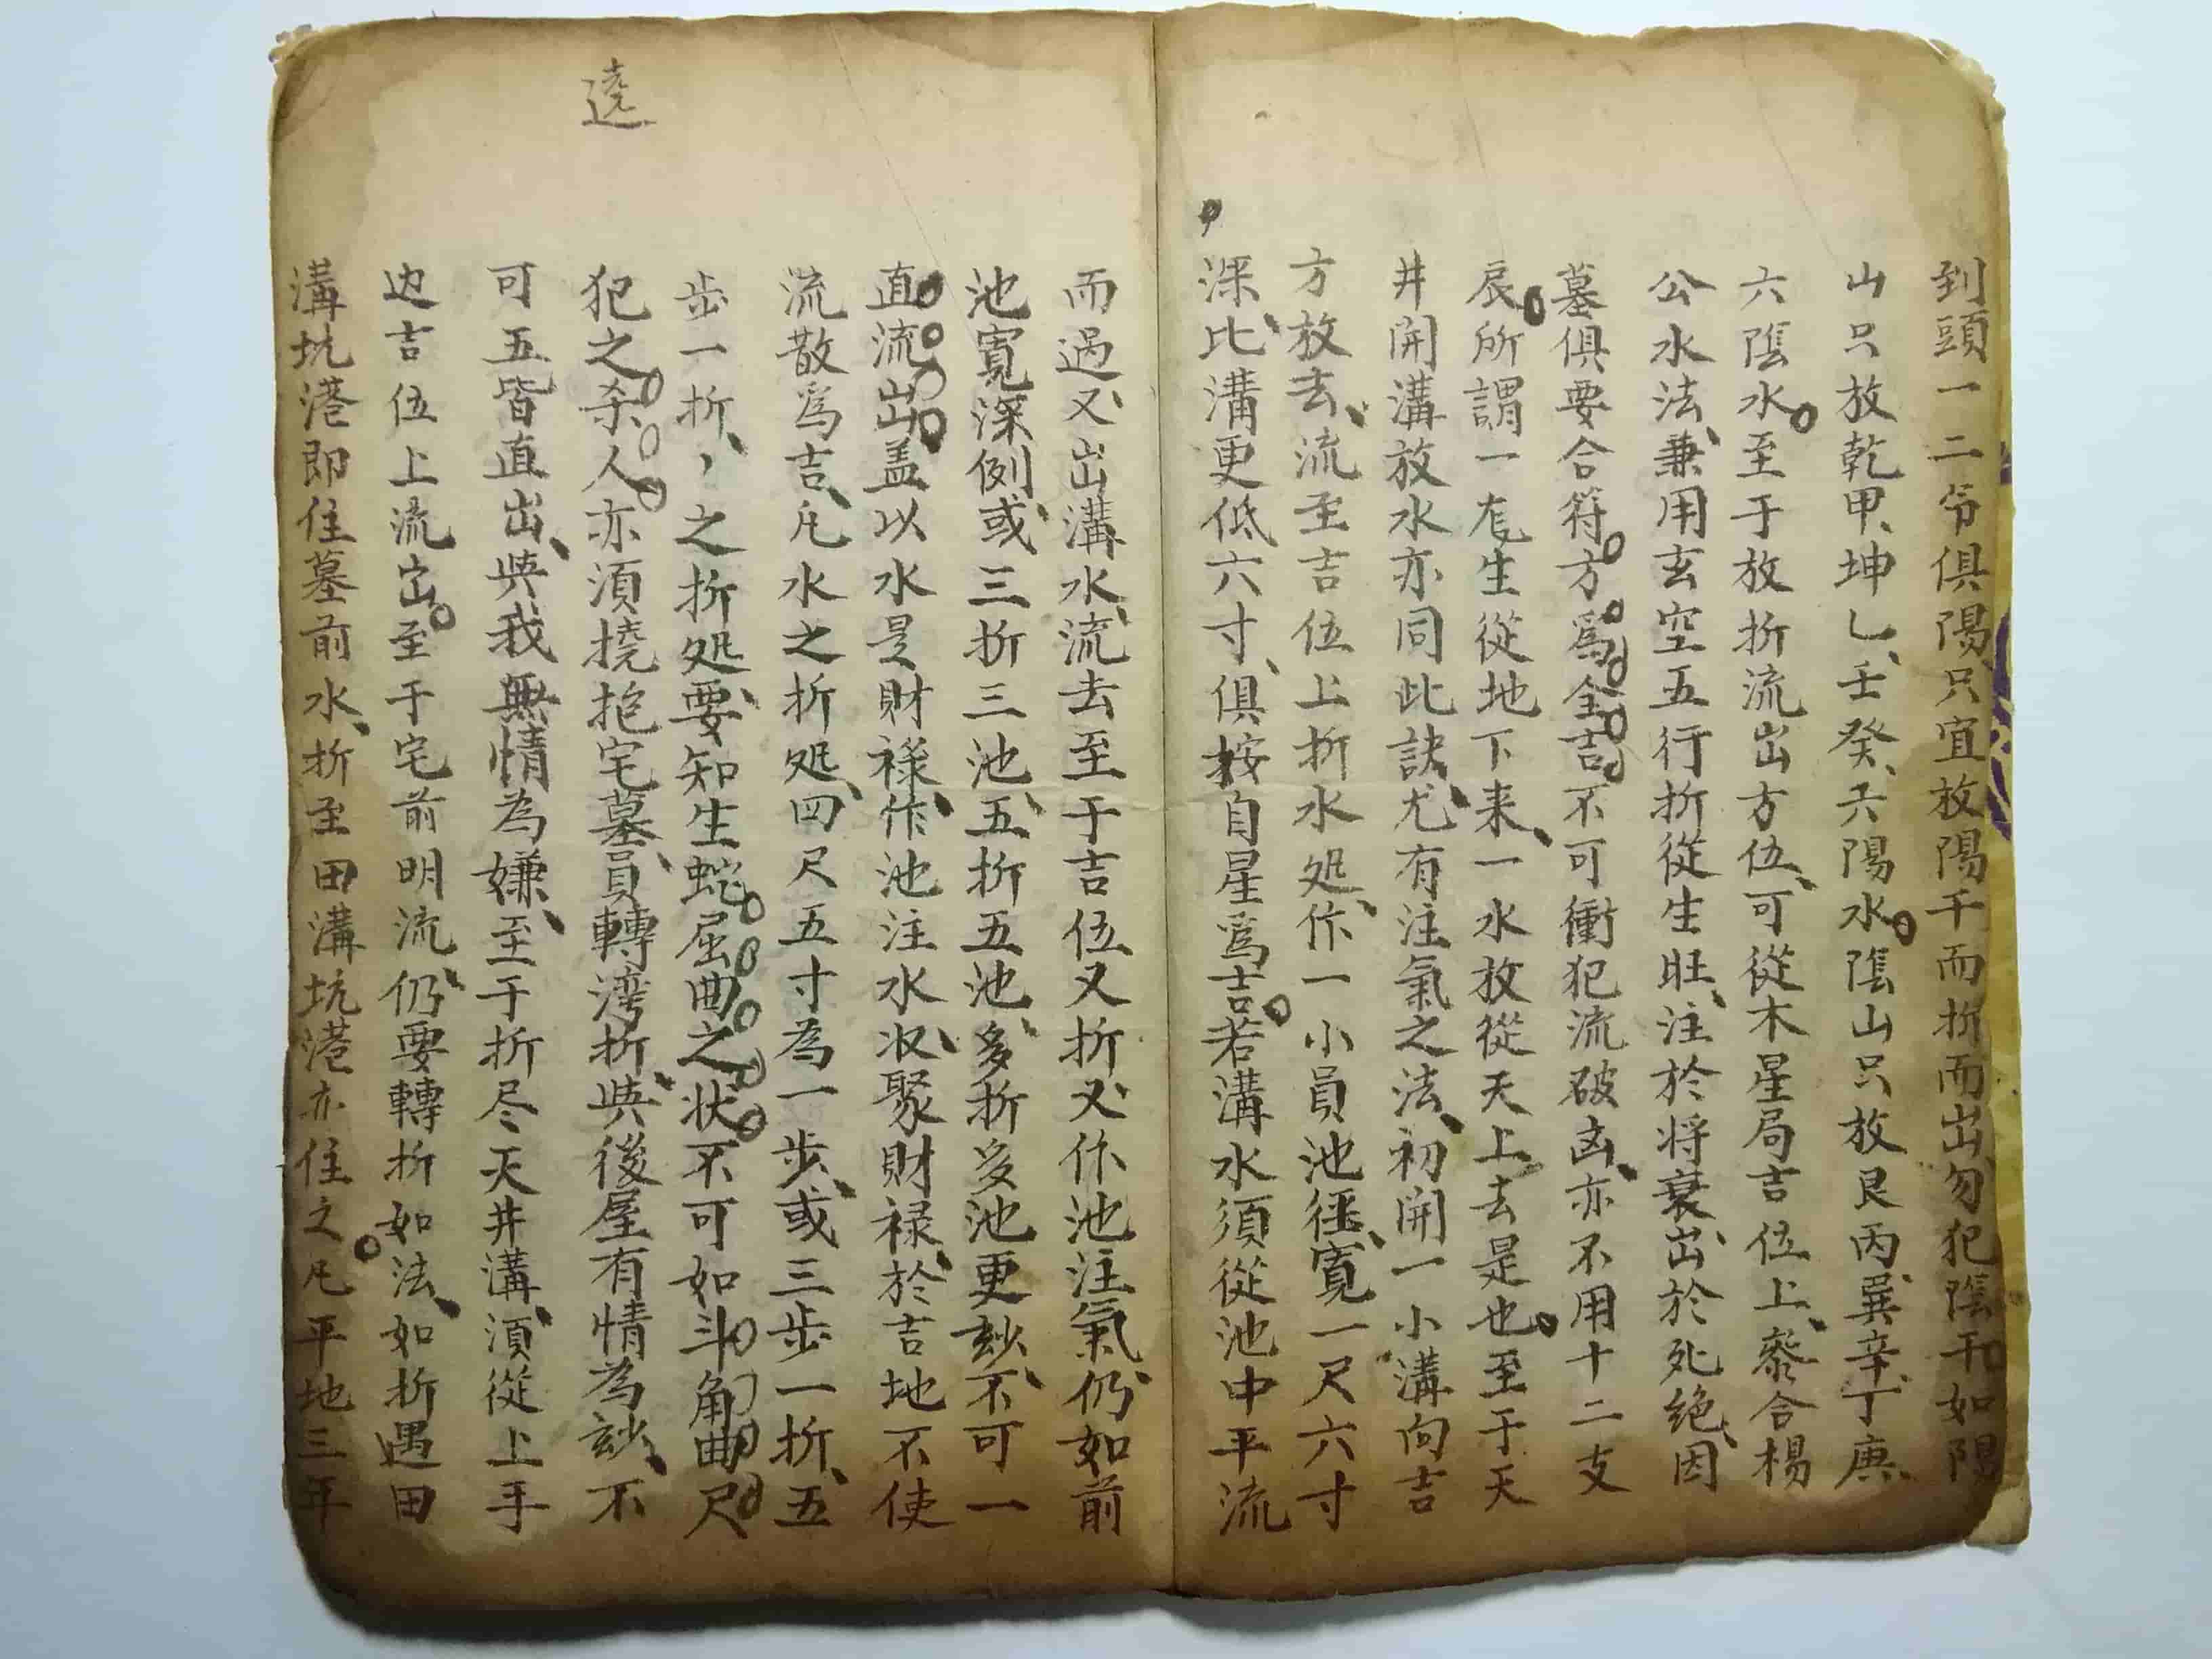 到頭一二爷俱陽只宜放陽干而折而出勿犯陰干如陽
山只放乾甲坤乚壬癸六陽水陰山只放艮丙巽辛丁庚
六陰水至于放折流出方位可從木星局吉位上叅合楊
公水法兼用玄空五行折從生旺注於将衰出於死絶因
墓俱要合符方爲全吉不可衝犯流破凶亦不用十二支
辰所謂一㡯生從地下来一水放從天上去是也至于天
井開溝放水亦同此訣尤有注氣之法初開一小溝向吉
方放去流至吉位上折水処作一小員池徑寬一尺六寸
深比溝更低六寸俱按自星爲吉若溝水須從池中平流
而過又出溝水流去至于吉位又折又作池注氣仍如前
池寬深例或三折三池五折五池多折多池更玅不可一
直流出盖以水是財禄作池注水収聚財禄於吉地不使
流散爲吉凡水之折処四尺五寸為一步或三步一折五
步一折之折処要知生蛇屈曲之状不可如斗角曲尺
犯之杀人亦須撓抱宅墓員轉湾折與後屋有情為玅不
可五皆直出與我無情為嫌至于折尽天井溝須從上手
边吉位上流出至于宅前明流仍要轉折如法如折遇田
溝坑港即住墓前水折至田溝坑港亦住之凡平地三年
遶